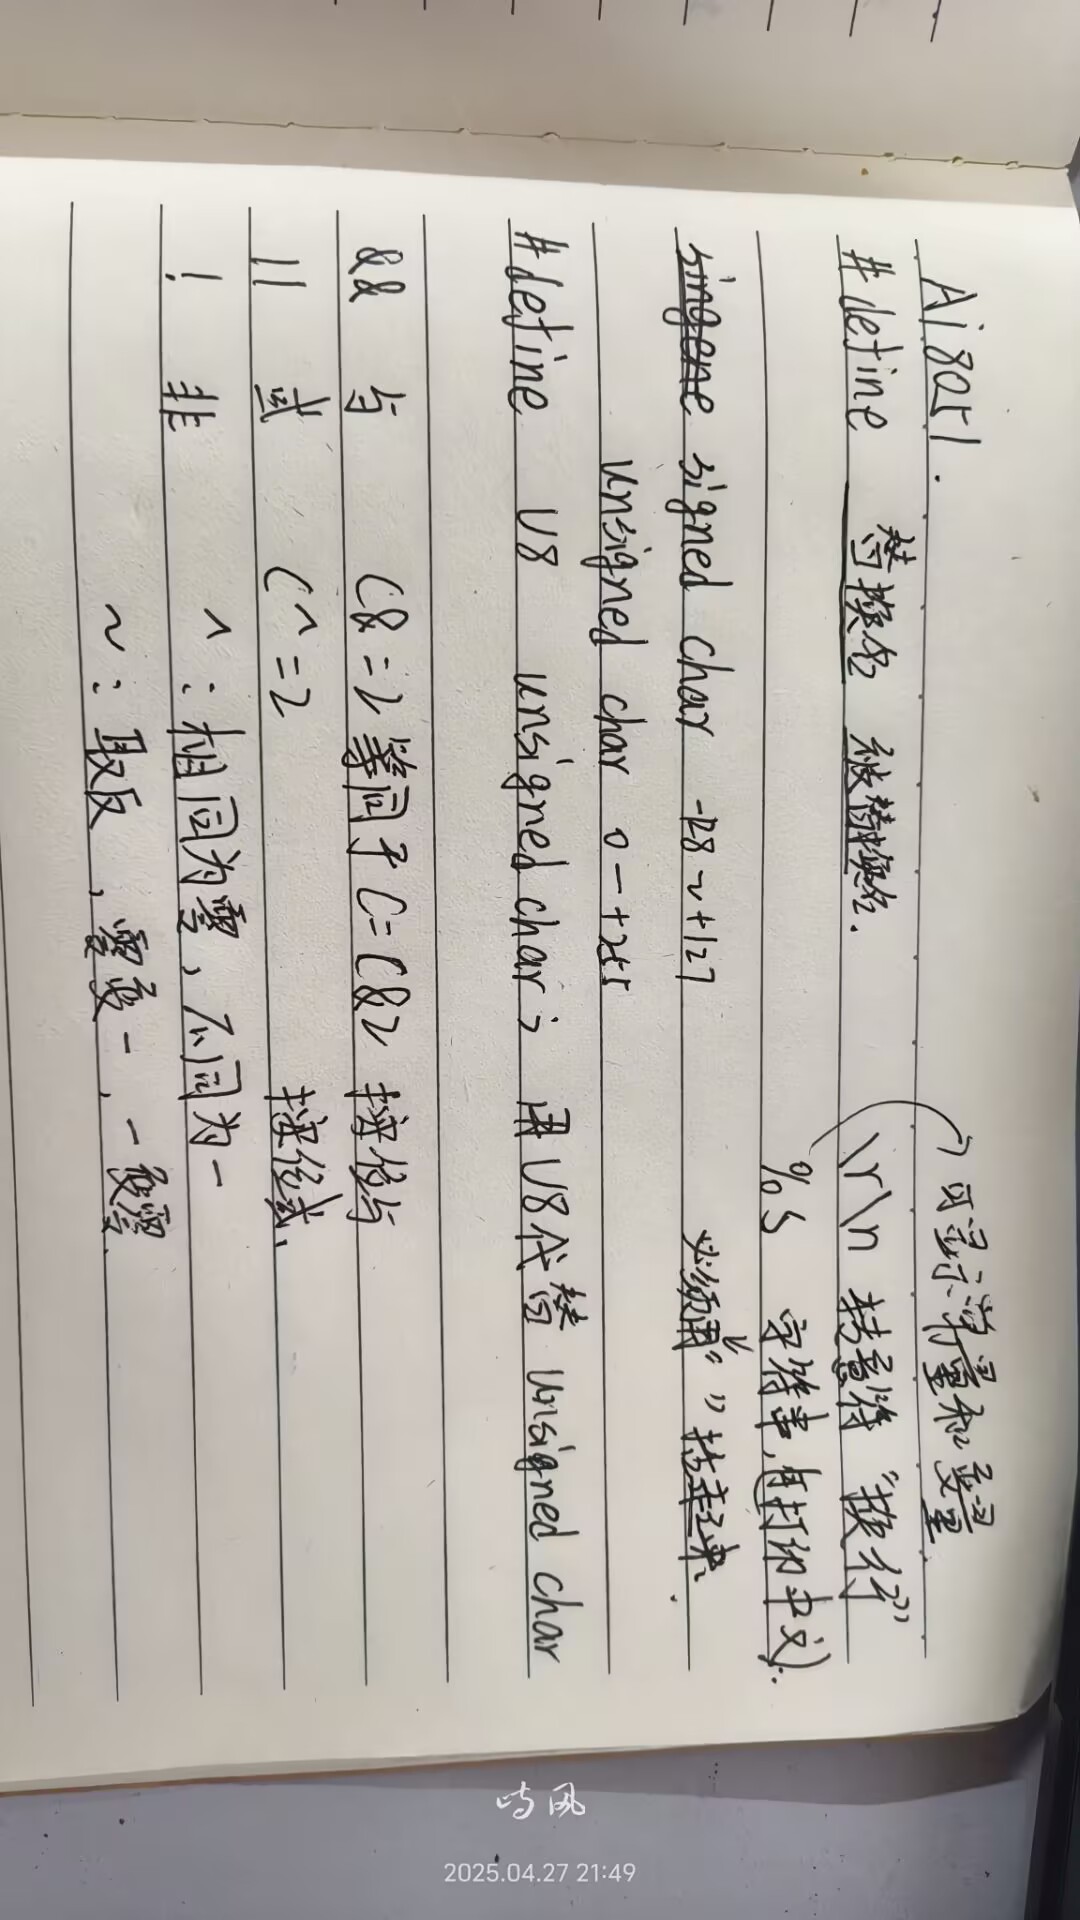 Ai8051.
可显示常量和变量
#define 替换名 被替换名.
\r\n 转意符 “换行”
%s 字符串,(再打印中文).
signed char -128~+127
必须用“ ”括起来.
unsigned char 0-+255
#define U8 unsigned char; 用U8代替 unsigned char
&& 与 C&=2等同于C=C&2 按位与
|| 或 C^=2 按位或.
! 非 ^:相同为零,不同为一
~:取反,零变一,一变零.
鸣风
2025.04.27 21:49